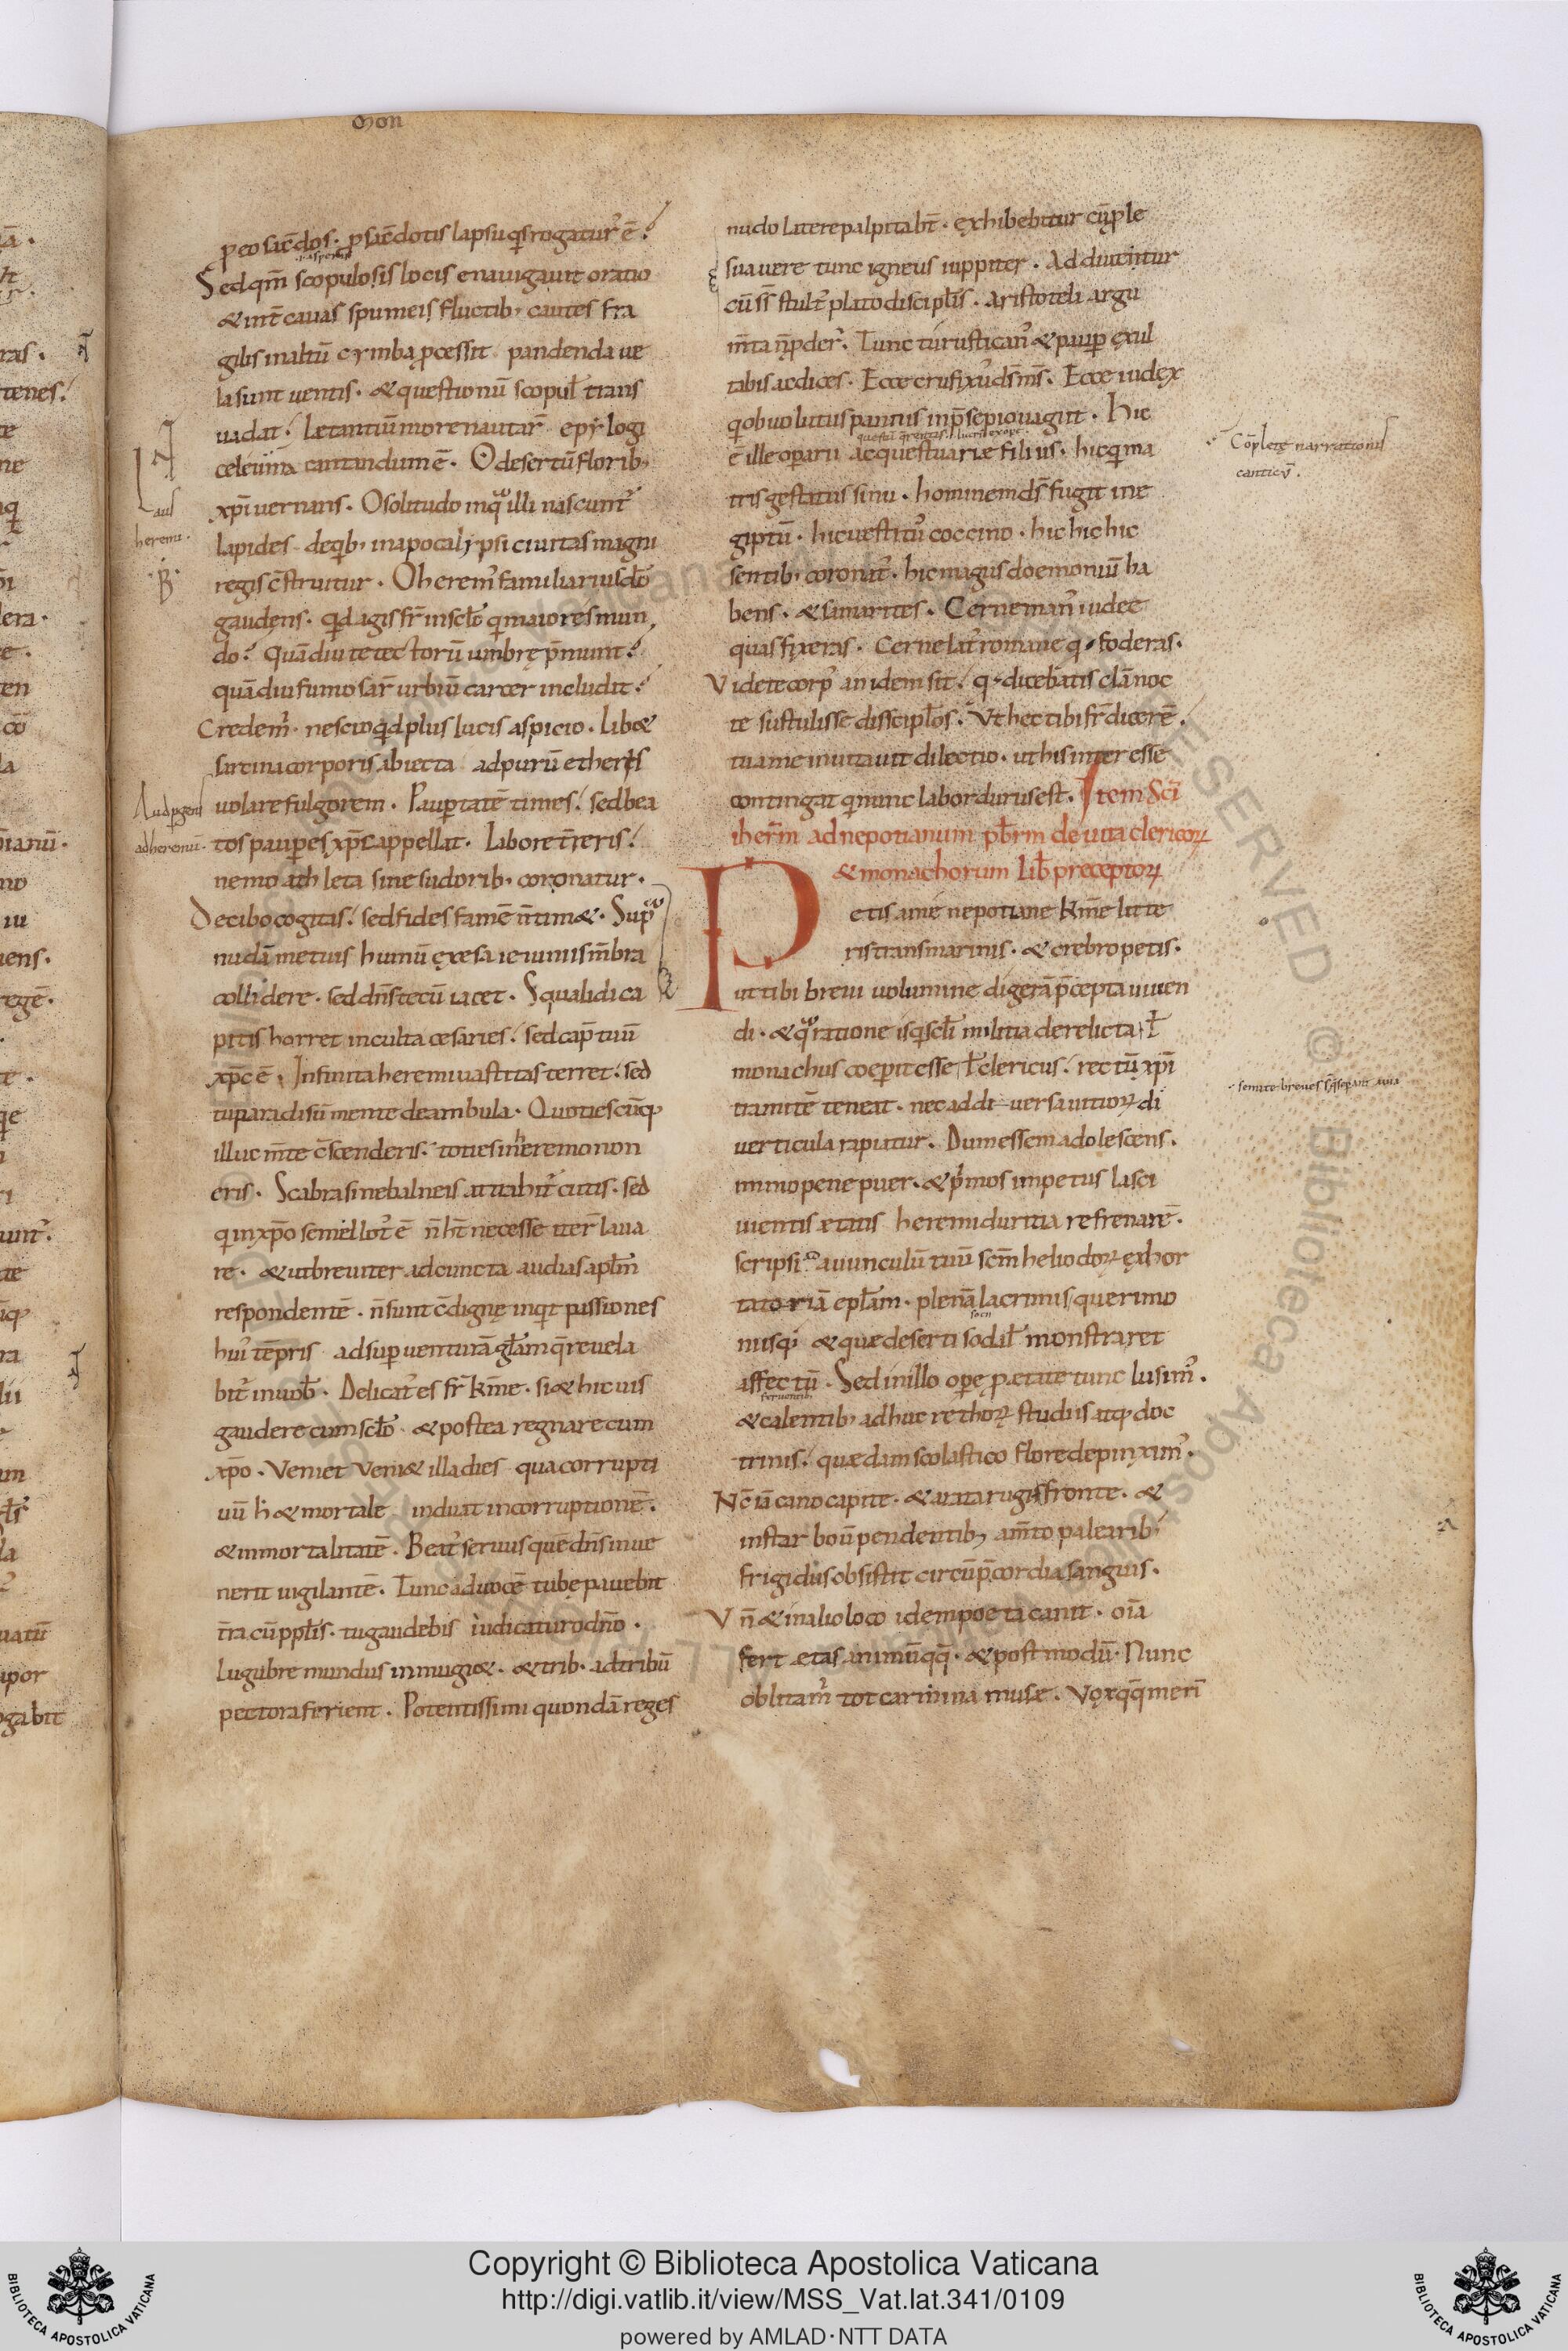 ꝑ eo sacẽdos. ꝑ sacẽdotis lapsu q̇s rogatur᾽ ẽ?
Sed qm̃ scopulosis locis enauigauit oratio
& int̃ cauas spumeis fluctib; cautes fra
gilis in altũ cymba ꝓcessit pandenda ue
la sunt uentis. & questionũ scopul̃ trans
uadat᾽. Lętantiũ more nautar̃ epylogi
celeuma cantandum ẽ. O desertũ florib;
xp̃i uernans. O solitudo in q̃ illi nascunt᾽
lapides de qib; in apocalypsi ciuitas magni
regis c̃struitur. O herem᾽ familiarius dõ
gaudens. qd agis fr̃ in sclõ qi maior es mun
do? Quãdiu te tectorũ umbrę p̃munt?
quãdiu fumosar̃ urbiũ carcer includit?
Credem᾽ nescio qd plus lucis aspicio. Lib&
sarcina corporis abiecta ad purũ etheris
uolare fulgorem. Pauꝑtatẽ times? sed bea
tos pauꝑes xp̃c appellat. Labore t̃reris?
nemo athleta sine sudorib; coronatur.
De cibo cogitas? sed fides famẽ ñ tim&. Sup̃
nudã metuis humũ exesa ieiuniis m̃bra
collidere. sed dñs tecũ iacet. Squalidi ca
pitis horret inculta cesaries? sed cap̃ tuũ
xp̃c ẽ. Infinita heremi uastitas terret? sed
tu paradisũ mente deambula. Quotiescũq;
illuc m̃te c̃scenderis. toties in heremo non
eris. Scabra sine balneis attrahit᾽ cutis. sed
qi in xp̃o semel lot᾽ ẽ ñ ht̃ necesse iter̃ laua
re. & ut breuiter ad cuncta audias apl̃m
respondentẽ. ñ sunt c̃digne inqit passiones
hui᾽ tẽpris ad superuenturã gl̃am q̃ reuela
bit᾽ in uob̃. Delicat᾽ es fr̃ km̃e. si & hic uis
gaudere cum sclõ & postea regnare cum
xp̃o. Veniet ueni& illa dies qua corrupti
uũ h̃ & mortale induat incorruptionẽ.
& inmortalitatẽ. Beat᾽ seruus quẽ dñs inue
nerit uigilantẽ. Tunc ad uocẽ tubę pauebit
t̃ra cũ ppl̃is. tu gaudebis iudicaturo dño.
Lugubre mundus inmugi&. & trib. ad tribũ
pectora ferient. Potentissimi quondã reges
nudo latere palpitabt̃. exhibebitur cũ ple
sua uere tunc igneus iuppiter. Adducitur
cũ ss̃ stult᾽ plato discipl̃is. aristoteli argu
m̃ta ñ ꝓder᾽. Tunc tu rustican᾽ & pauꝑ exul
tabis ac dices. Ecce crucifixus d̃s m̃s. Ecce iudex
qi obuolutus pannis in p̃sepio uagiit. Hic
ẽ ille oꝑarii ac questuarię filius. hic qi ma
tris gestatus sinu. hominem d̃s fugit in e
giptũ. hic uestit᾽ coccino. hic hic hic
sentib; coronat᾽. hic magus doemoniũ ha
bens. & samarites. Cerne man᾽ iudee
quas fixeras. Cerne lat᾽ romane q; foderas.
Videte corp᾽ an idem sit? q; dicebatis clã noc
te sustulisse discipl̃os. Vt hec tibi fr̃ dicerẽ.
tua me inuitauit dilectio. ut his interesse
contingat qi nunc labor durus est. Item Sc̃i
iher̃m ad nepotianum pb̃rm de uita clericoꝝ
& monachorum Lib̃ preceptoꝝ
Petis a me nepotiane km̃e litte
ris transmarinis. & crebro petis.
ut tibi breui uolumine digerã p̃cepta uiuen
di. & q̃ ratione is qi scl̃i militia derelicta l̃
monachus coeperit esse l̃ clericus? rectũ xp̃i
tramitẽ teneat. nec ad diuersa uitioꝝ di
uerticula rapiatur. Dum essem adolescens.
immo pene puer. & p̃mos impetus lasci
uientis ętatis heremi duritia refrenarẽ.
scripsi ad auunculũ tuũ sc̃m heliodoꝝ exhor
tatoriã epl̃am. plenã lacrimis querimo
niisq; & quę deserti sodal̃ monstraret
affectũ. Sed in illo oꝑe ꝓ ętate tunc lusim᾽.
& calentib; adhuc rethoꝝ studiis atq; doc
trinis? quędam scolastico flore depinxim᾽.
Nc̃ iã cano capite. & arata rugis fronte. &
instar boũ pendentib; a m̃to palearib;
frigidus obsistit circũ p̃cordia sanguis.
Vñ & in alio loco idem poeta canit. om̃ia
fert ętas animũqq̃. & post modũ. Nunc
oblita m̃ tot carmina muse. Vox qq̃ meri᾽
Laus
heremi.
adheremũ.
Cõplete narrationis
canticũ.